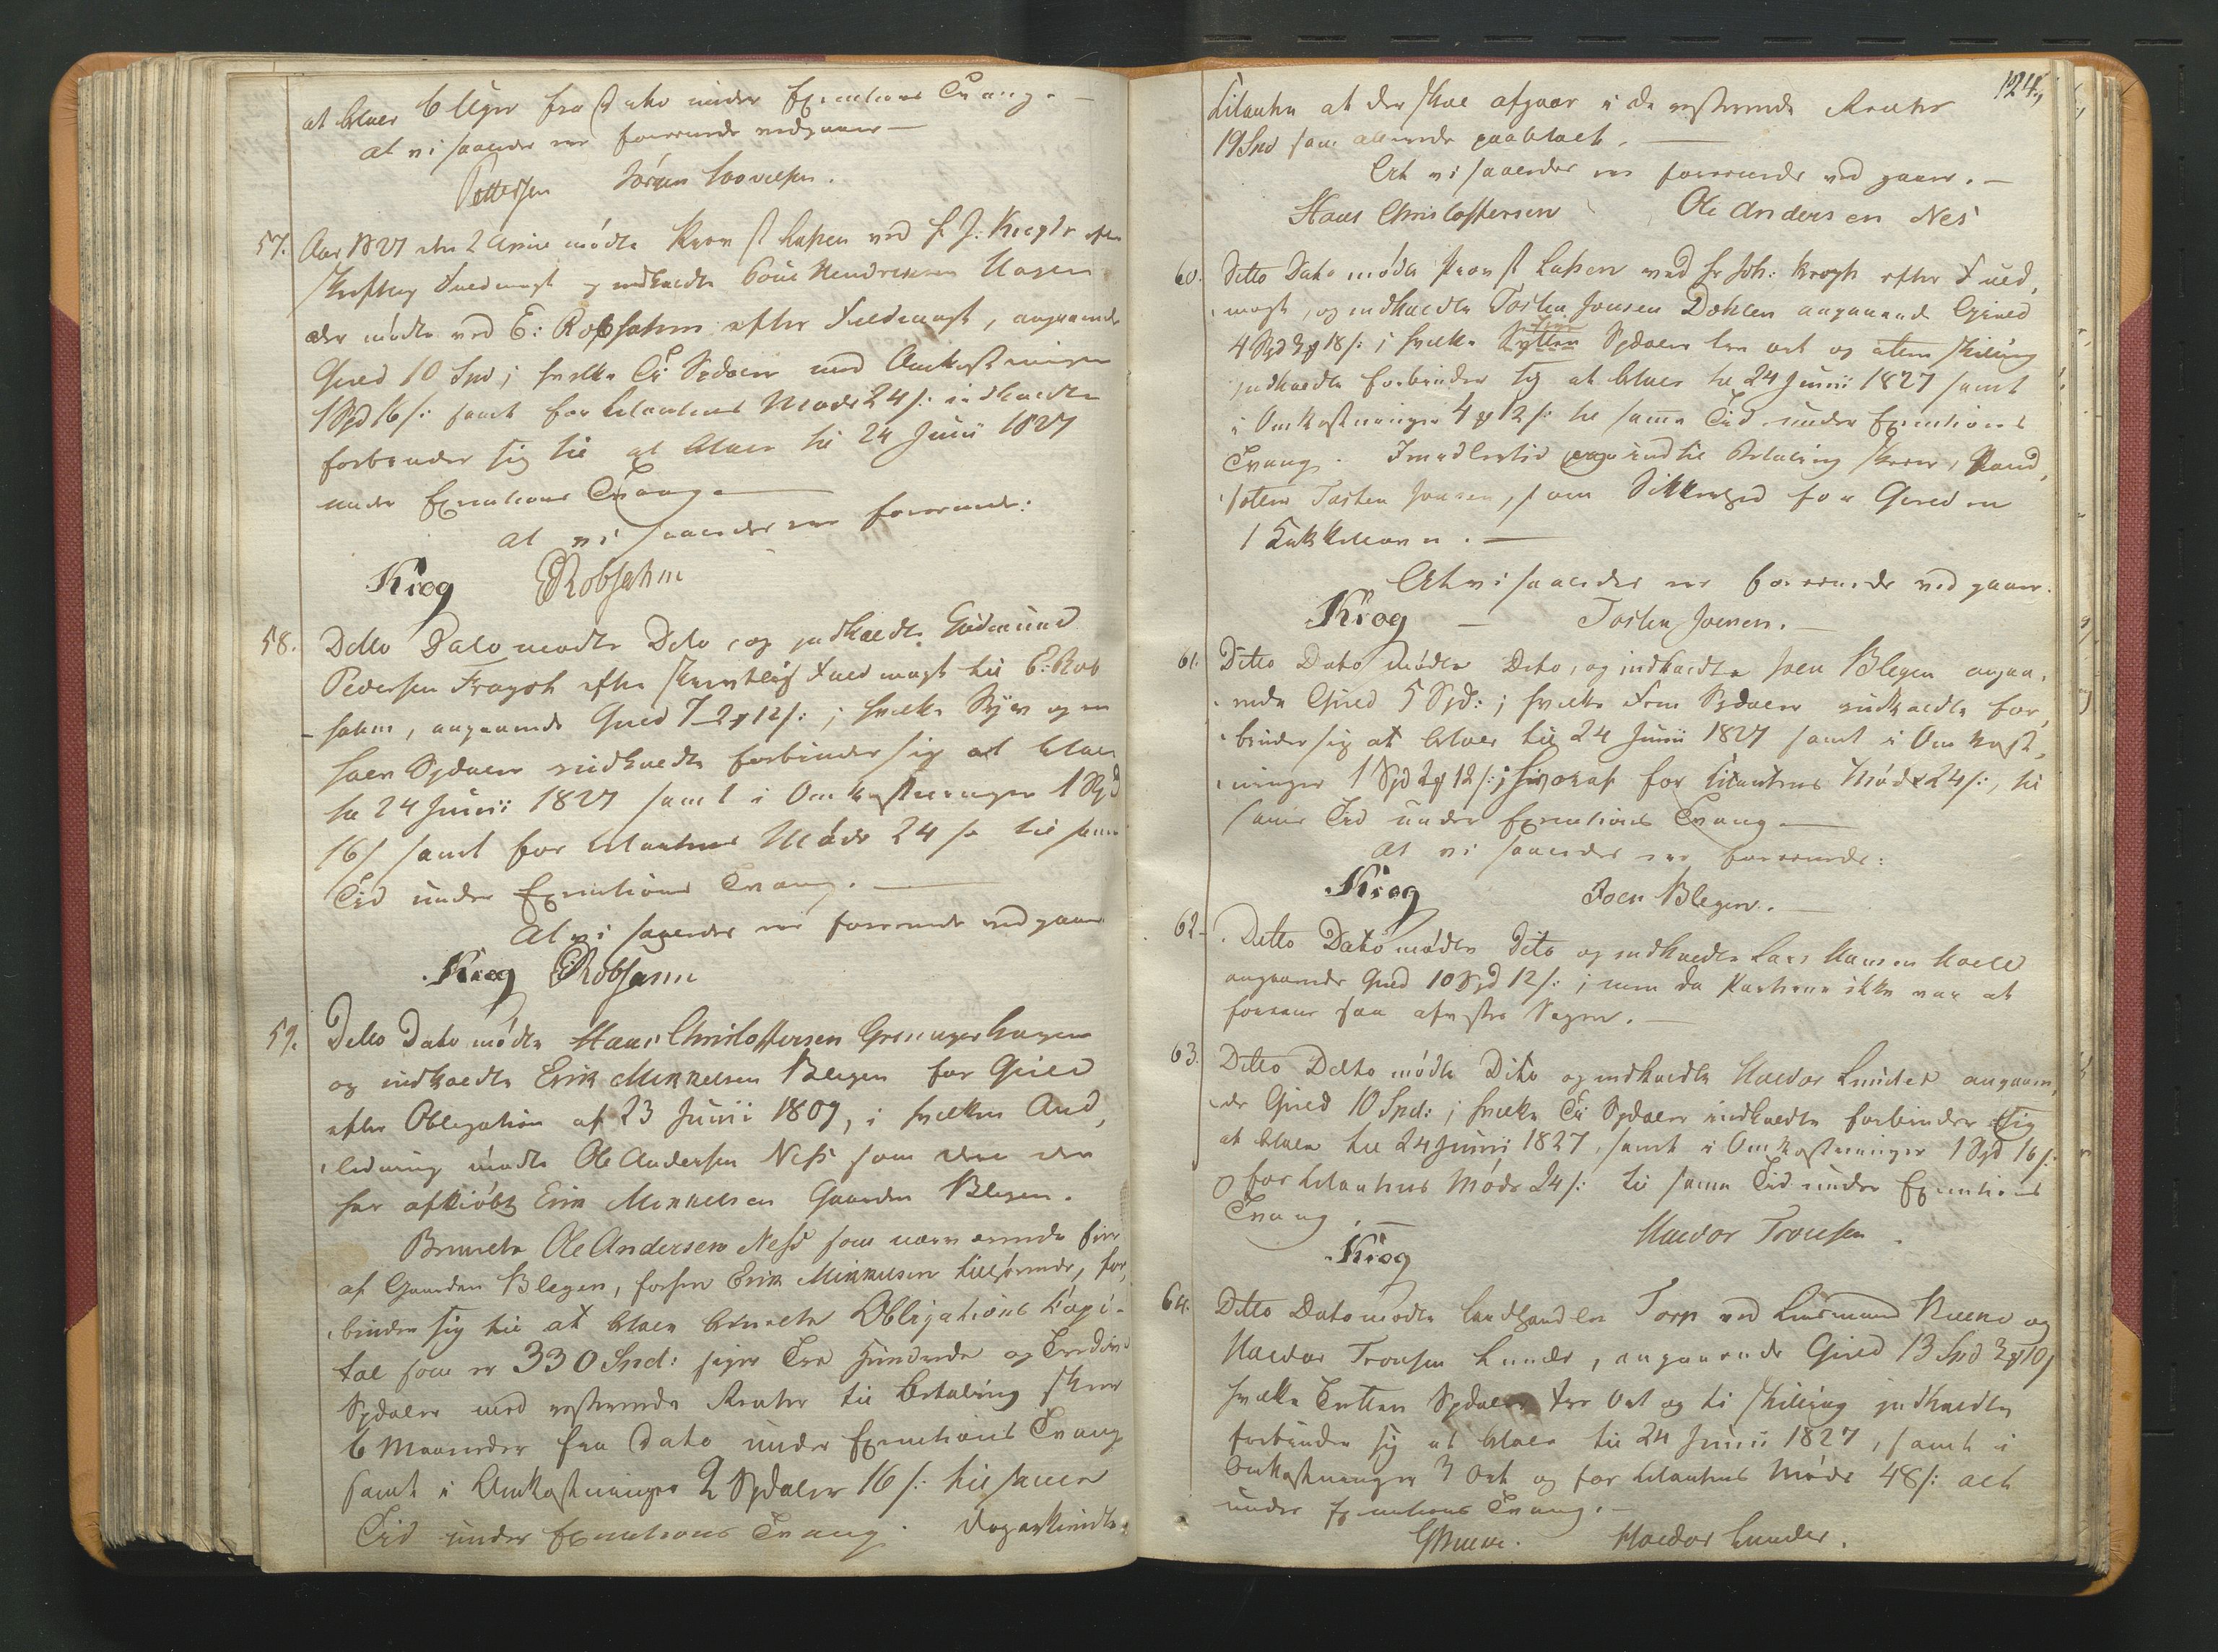 at betale 6 Uger fra Dato under Executions Tvang
at vi saaledes ere forenende vedgaaer
Pettersen Jörgen
57. Aar 1827 den 2 April mödte Provst Lassen ved Hr J. Krogh efter
skriftlig Fuldmagt og indkaldte Poul Hendriksen Hagen
der mödte ved E: Robsahm efter Fuldmagt, angaaende
Gield 10 Spd; hvilke Ti Spdaler med Omkostninger
1 Spd 16 s: samt for Citantens Møde 24 s: indkaldte
forbinder sig til at betale til 24 Junii 1827
under Executions Tvang
at vi saaledes ere forenende:
Krog ERobsahm
58. Ditto Dato mödte Dito, og indkaldte Gudmund
Pedersen efter skriftlig Fuldmagt til E: Rob
sahm, angaaende Gield 7 - 2 # 12 s: ; hvilke Syv og en
halv Spdaler indkaldte forbinder sig at betale
til 24 Junii 1827 samt i Omkostninger 1 Spd
16 s samt for Citantens Møde 24 s til samme
Tid under Executions Tvang.
At vi saaledes ere forenende vedgaaer
Krog ERobsamn
59. Ditto Dato mödte Hans Christoffersen
og indkaldte Erik Mikkelsen Blegen for Gield
efter Obligation af 23 Junii 1809, i hvilken And,
ledning mödte Ole Andersen Ness som den der
har afkiöbt Erik Mikkelsen Gaarden Blegen.
Bemelte Ole Andersen Ness som nærværende Eier
af Gaarden Blegen, forhen Erik Mikkelsen tilhørende, for,
binder sig til at betale bemelte Obligations Capi-
tal som er 330 Spd: siger Tre Hundrede og Tredive
Spdaler med resterende Renter til Betaling skeer
6 Maaneder fra Dato under Executions Tvang
samt i Omkostninger 2 Spdaler 16 s: til samme
Tid under Executions Tvang. Dog erkiendte
124,
Citanten at der skal afgaar i de resterende Renter
19 Spd som allerede paabetalt.
At vi saaledes ere forenende ved gaaer.
Hans Christoffersen Ole Andersen Nes
60. Ditto Dato mödte Provst Lassen ved Hr Joh: Krogh efter Fuld,
magt, og indkaldte Tosten Jonsen Dahlen angaaende Gield
4 Spd 3 # 18 s: ; hvilke Spdaler tre ort og atten skilling
indkaldte forbinder sig at betale til 24 Junii 1827 samt
i Omkostninger 4 # 12 s: til samme Tid under Executions
Tvang. Imidlertid indtil Betaling skeer, Pand,
sætter Tosten Jonsen, som Sikkerhed for Gielden
1 .
At vi saaledes ere forenende ved gaaer.
Krog Tosten Joensen.
61. Ditto Dato mödte Dito, og indkaldte Joen Blegen angaa,
ende Gield 5 Spd: ; hvilke Fem Spdaler indkaldte for,
binder sig at betale til 24 Junii 1827 samt i Omkost,
ninger 1 Spd 2 # 12 s: ; hvoraf for Citantens Møde 24 s:, til
samme Tid under Executions Tvang
At vi saaledes ere forenende:
Krog Joen Blegen.
62. Ditto Dato mödte Dito og indkaldte Lars Hansen
angaaende Gield 10 Spd 12 s: ; men da Parterne ikke var at
forene saa afvistes Sagen.
63. Ditto Datto mödte Dito og indkaldte Haldor Lunder angaaen,
de Gield 10 Spd: ; hvilke Ti Spdaler indkaldte forbinder sig
at betale til 24 Junii 1827, samt i Omkostninger 1 Spd 16 s:
og for Citantens Møde 24 s: til samme Tid under Executions
Tvang.
Krog Haldor Tronsen
64. Ditto Dato mödte Landhandler Torp ved Lensmand og
Haldor Tronsen Lunde, angaaende Gield 13 Spd 3 # 10 s
hvilke Tretten Spdaler tre Ort og ti skilling indkaldte
forbinder sig at betale til 24 Junii 1827, samt i
Omkostninger 3 Ort og for Citantens Møde 48 s: alt
under Executions Tvang.
Haldor Lunder.